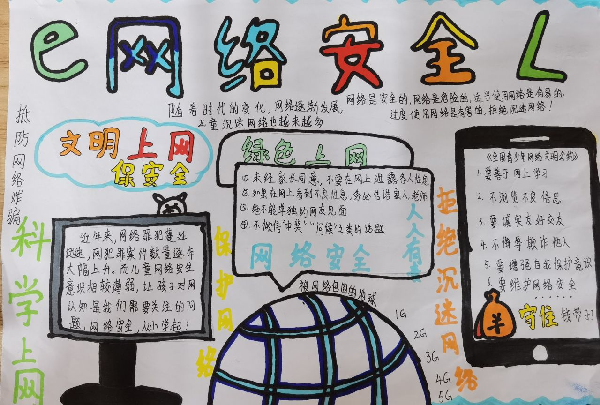 e网络安全
随着时代的变化，网络逐渐发展，
儿童沉迷网络也越来越多
网络是安全的，网络是危险的，
过度使用网络是有害的，拒绝沉迷网络！
抵防网络诈骗
文明上网
保安全
绿色上网
①未经家长同意，不要在网上泄露个人信息
②如果在网上看到不良信息，务必告诉家人、老师
③绝不能单独和网友见面
网络安全
人人有责
科学上网
近年来，网络罪犯蔓延
迅速，网犯罪案件数量逐年
大幅上升，而儿童网络安全
意识相较薄弱，让孩子对网
络认知是我们需要关注的问
题，网络安全，从小学起！
保护网络
被网络包围的地球
1G
2G
3G
4G
5G
拒绝沉迷网络
《全国青少年网络文明公约》
1.要善于网上学习
2.不浏览不良信息
3.要诚实友好交友
4.不侮辱欺诈他人
5.要增强自我保护意识
6.要维护网络安全
羊
守住
钱袋子！